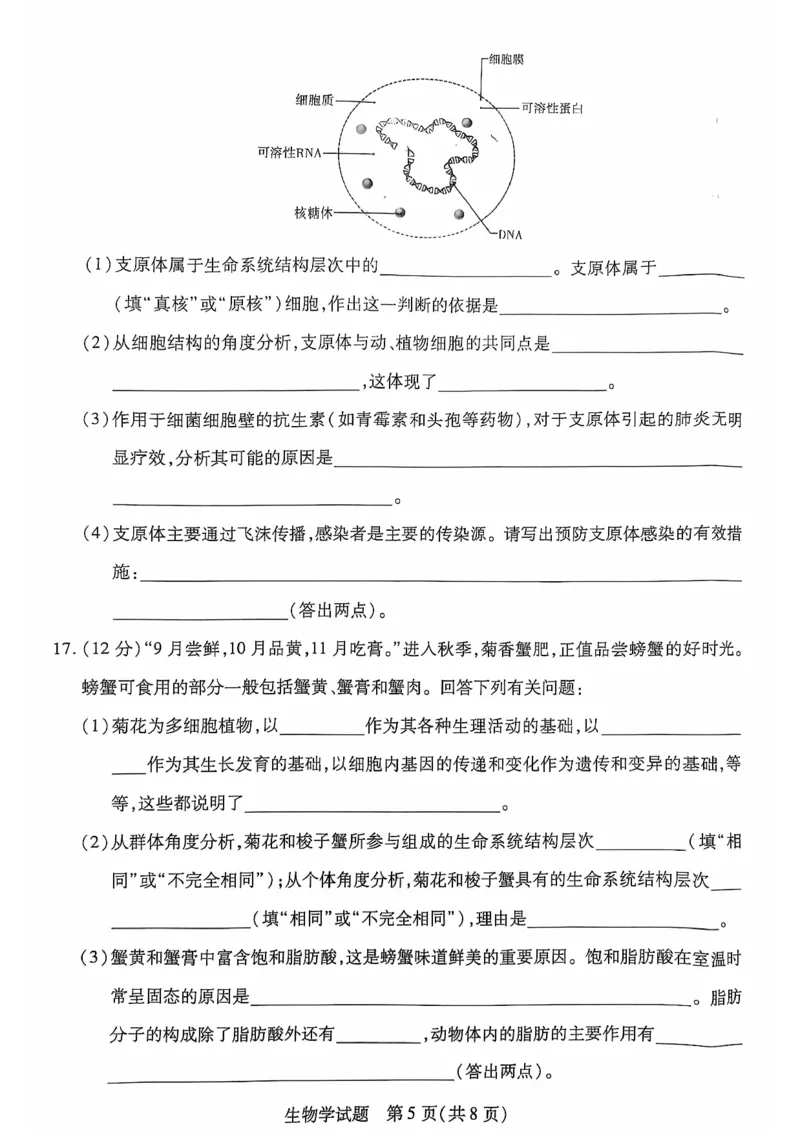 细胞膜
细胞质
可溶性蛋白
可溶性RNA
核糖体
DNA
(1)支原体属于生命系统结构层次中的____________。支原体属于______
(填“真核”或“原核”)细胞,作出这一判断的依据是________________。
(2)从细胞结构的角度分析,支原体与动、植物细胞的共同点是______________
__________________,这体现了____________。
(3)作用于细菌细胞壁的抗生素(如青霉素和头孢等药物),对于支原体引起的肺炎无明
显疗效,分析其可能的原因是______________________________
____________________。
(4)支原体主要通过飞沫传播,感染者是主要的传染源。请写出预防支原体感染的有效措
施:____________________________________________
____________(答出两点)。
17.(12分)“9月尝鲜,10月品黄,11月吃膏。”进入秋季,菊香蟹肥,正值品尝螃蟹的好时光。
螃蟹可食用的部分一般包括蟹黄、蟹膏和蟹肉。回答下列有关问题:
(1)菊花为多细胞植物,以______作为其各种生理活动的基础,以__________
___作为其生长发育的基础,以细胞内基因的传递和变化作为遗传和变异的基础,等
等,这些都说明了__________________。
(2)从群体角度分析,菊花和梭子蟹所参与组成的生命系统结构层次______(填“相
同”或“不完全相同”);从个体角度分析,菊花和梭子蟹具有的生命系统结构层次__
__________(填“相同”或“不完全相同”),理由是______________。
(3)蟹黄和蟹膏中富含饱和脂肪酸,这是螃蟹味道鲜美的重要原因。饱和脂肪酸在室温时
常呈固态的原因是________________________________。脂肪
分子的构成除了脂肪酸外还有______,动物体内的脂肪的主要作用有______
________________________(答出两点)。
生物学试题 第5页(共8页)